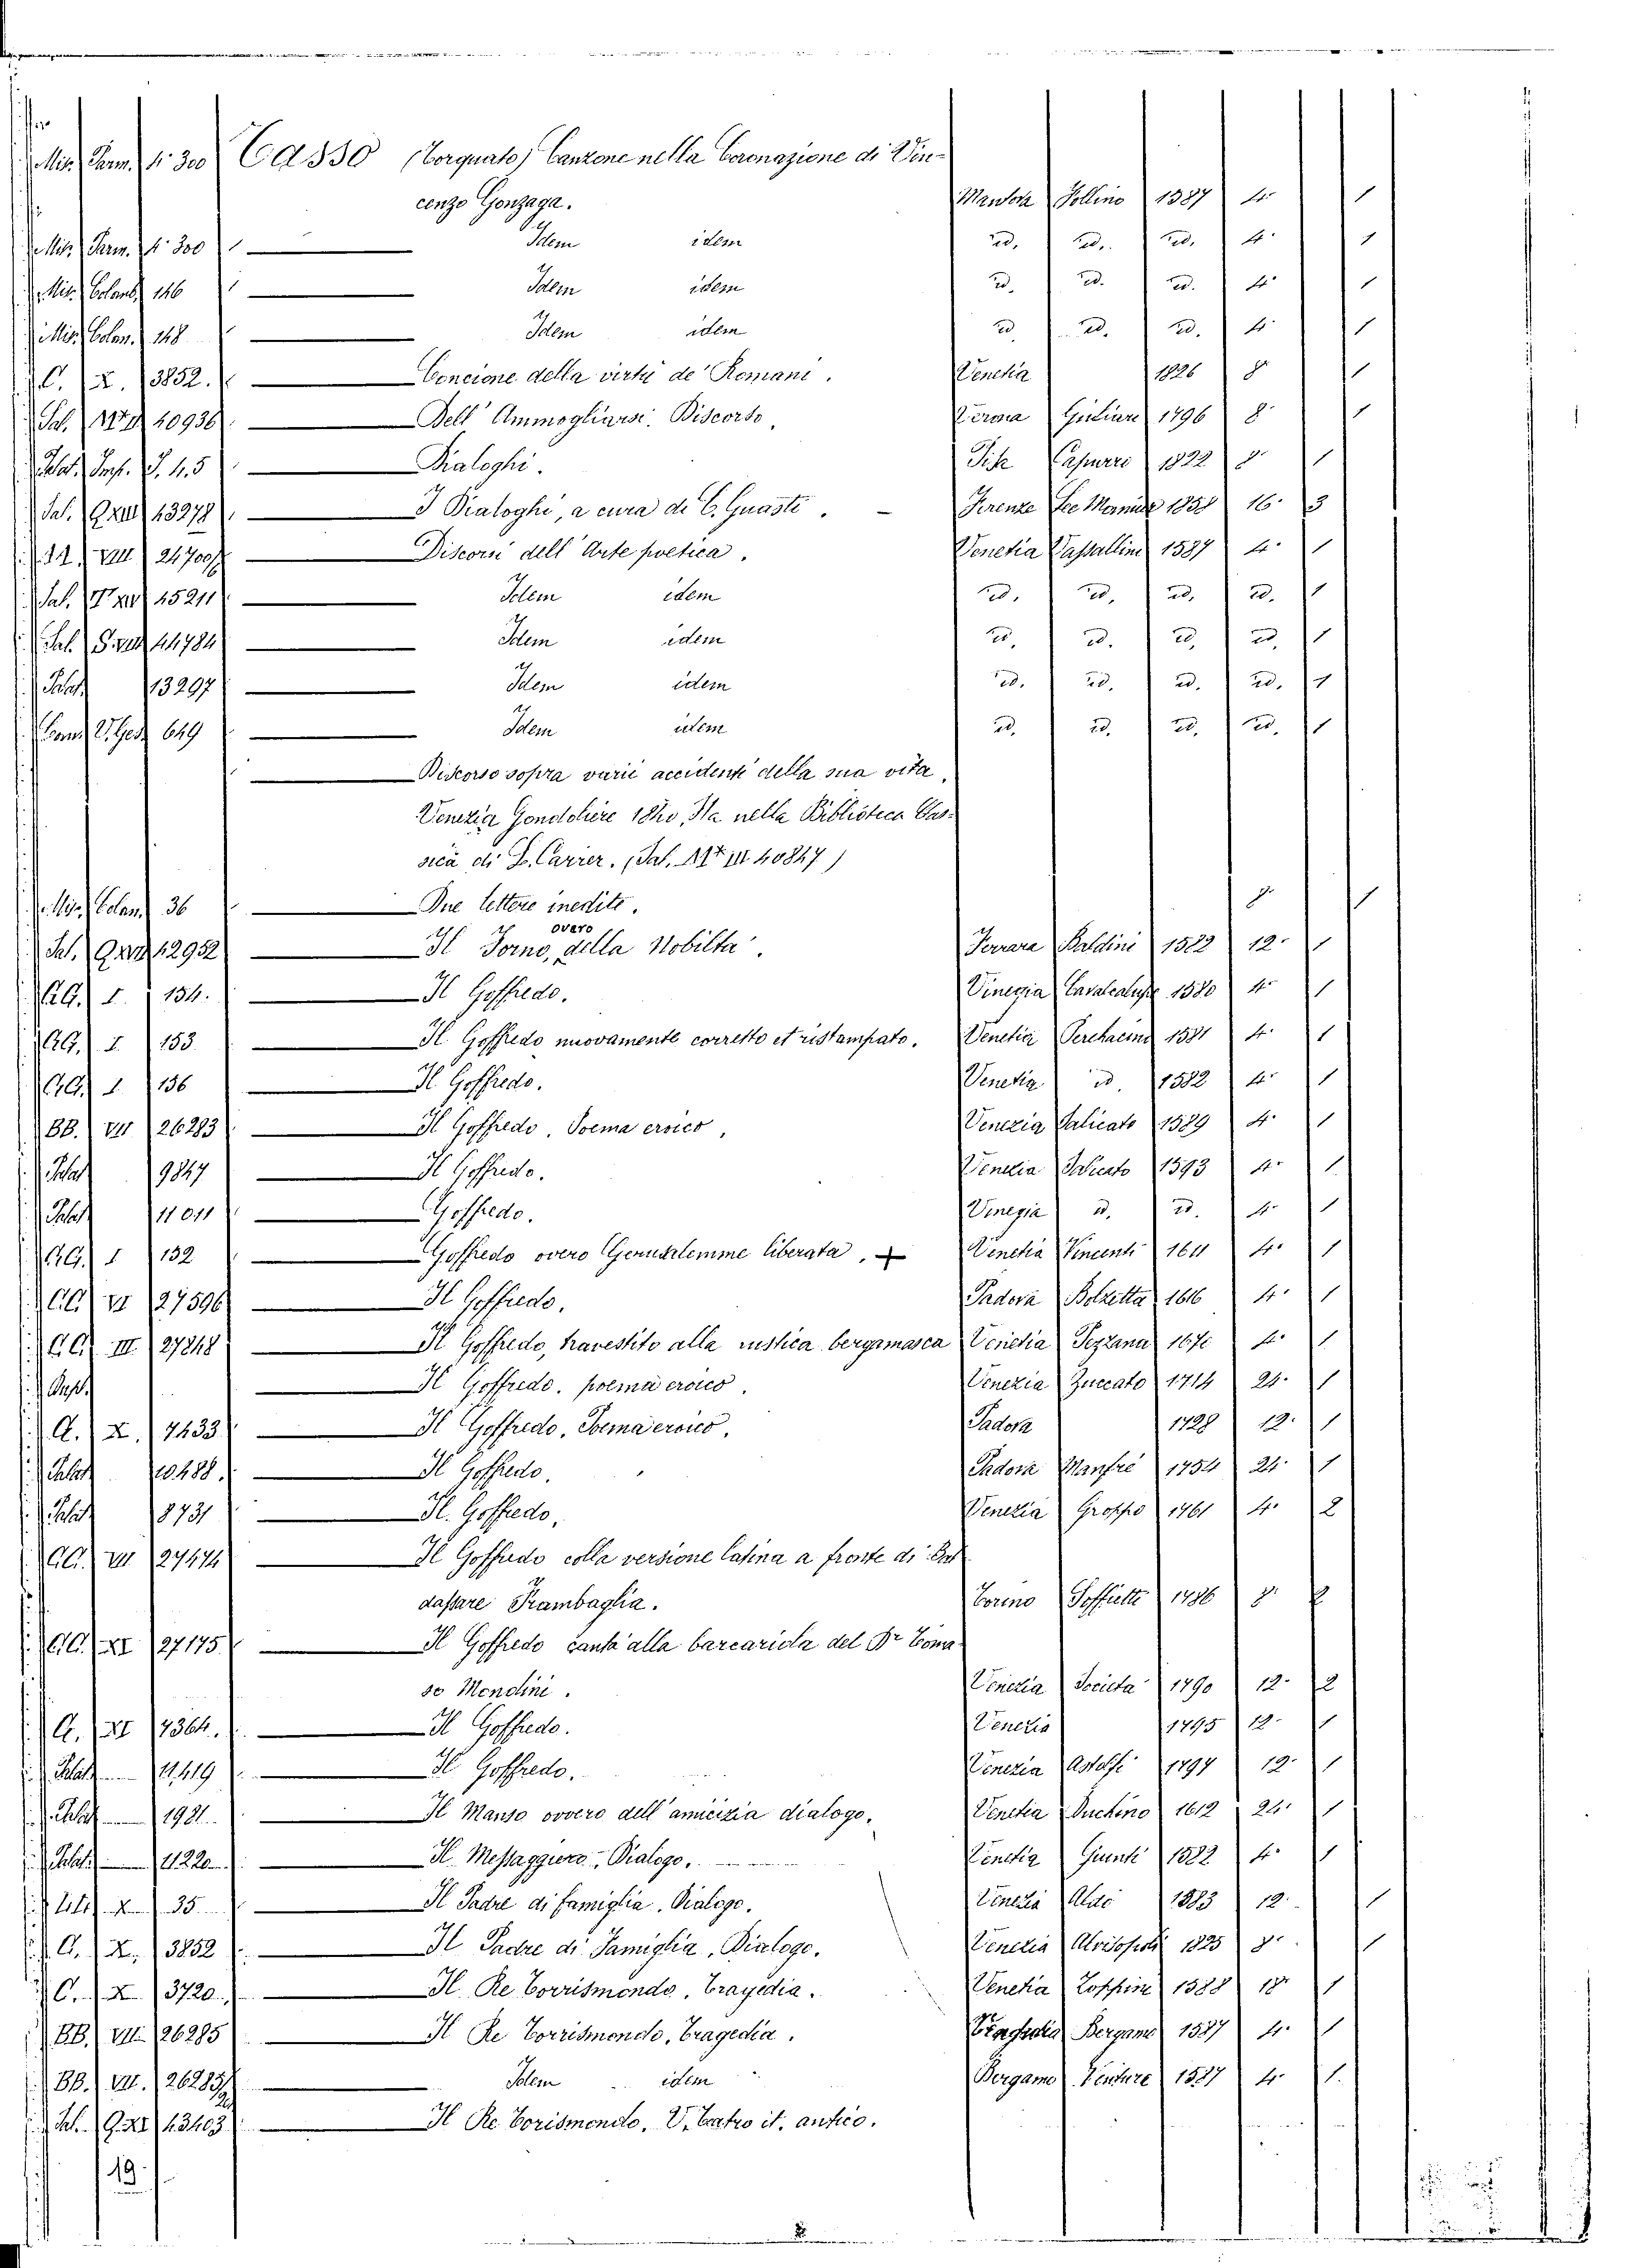 Mis. Parm. 4. 300 TASSO (Torquato) Canzone nella Coronazione di Vin-
cenzo Gonzaga. Mantova Pollino 1587 4. 1
Mis. Parm. 4. 300 Idem idem id. id. id. 4. 1
Mis. Colomb. 146 Idem idem id. id. id. 4. 1
Mis. Colom. 148 Idem idem id. id. id. 4. 1
C. X. 3852. Concione della virtù de' Romani. Venetia 1826 8. 1
Sal. 40936 Dell' Ammogliarsi. Discorso. Verona Giuliari 1796 8. 1
Palat. 4.5 Dialoghi. Pisa Capurro 1822 8. 1
Sal. 43978 I Dialoghi, a cura di C. Guasti. Firenze Le Monnier 1858 16. 3
VIII 24700 Discorsi dell' Arte poetica. Venetia Vassallini 1587 4. 1
Sal. 45211 Idem idem id. id. id. id. 1
Sal. 44784 Idem idem id. id. id. id. 1
Palat. 13297 Idem idem id. id. id. id. 1
649 Idem idem id. id. id. id. 1
Discorso sopra varii accidenti della sua vita,
Venezia Gondoliere 1840, Sta nella Biblioteca Clas-
sica di L. Carrer. (Sal. III 40847)
Mis. Colomb. 36 Due lettere inedite. 8. 1
Sal. 42952 Il Forno, overo della Nobiltà. Ferrara Baldini 1582 12. 1
GG. I. 154. Il Goffredo. Vinegia Cavalcalupo 1580 4. 1
GG. I. 153 Il Goffredo nuovamente corretto et ristampato. Venetia Perchacino 1581 4. 1
GG. I. 156 Il Goffredo. Venetia id. 1582 4. 1
BB. VII 26283 Il Goffredo, Poema eroico, Venezia Salicato 1589 4. 1
Palat. 9847 Il Goffredo. Venetia Salicato 1593 4. 1
Palat. 11011 Goffredo. Vinegia id. id. 4. 1
GG. I 152 Goffredo overo Gerusalemme liberata. Venetia Vincenti 1611 4. 1
CC. VI 27596 Il Goffredo. Padova Bolzetta 1616 4. 1
CC. III 27248 Il Goffredo, travestito alla rustica bergamasca Venetia Pezzana 1670 4. 1
Il Goffredo. poema eroico. Venezia Zuccato 1714 24. 1
A. X. 7433 Il Goffredo, Poema eroico. Padova 1728 12. 1
Palat. 10488. Il Goffredo. Padova Manfrè 1754 24. 1
Palat. 8731 Il Goffredo. Venezia Groppo 1761 4. 2
CC. VII 27474 Il Goffredo colla versione latina a fronte di Bal
dassare Frambaglia. Torino Soffietti 1786 8. 2
CC. XI 27175 Il Goffredo cantà alla barcariola del Dr Toma-
so Mondini. Venezia Società 1790 12. 2
A. XI 7364. Il Goffredo. Venezia 1795 12. 1
Palat. 11,419 Il Goffredo. Venezia Astolfi 1797 12. 1
Palat. 1981 Il Manso ovvero dell' amicizia dialogo. Venetia Duchino 1612 24. 1
Palat. 11220 Il Messaggiero, Dialogo. Venetia Giunti 1582 4. 1
X. 35 Il Padre di famiglia. Dialogo. Venezia Aldo 1583 12. 1
C. X. 3852 Il Padre di Famiglia, Dialogo. Venezia Alvisopoli 1825 8. 1
C. X. 3720. Il Re Torrismondo. Tragedia. Venetia Zoppini 1588 18 1
BB. VII. 26285 Il Re Torrismondo, Tragedia. Tragedia Bergamo 1587 4. 1
BB. VII. 26285 Idem idem Bergamo Venture 1587 4. 1.
Sal. 43403 Il Re Torismondo, V. Teatro it. antico.
19